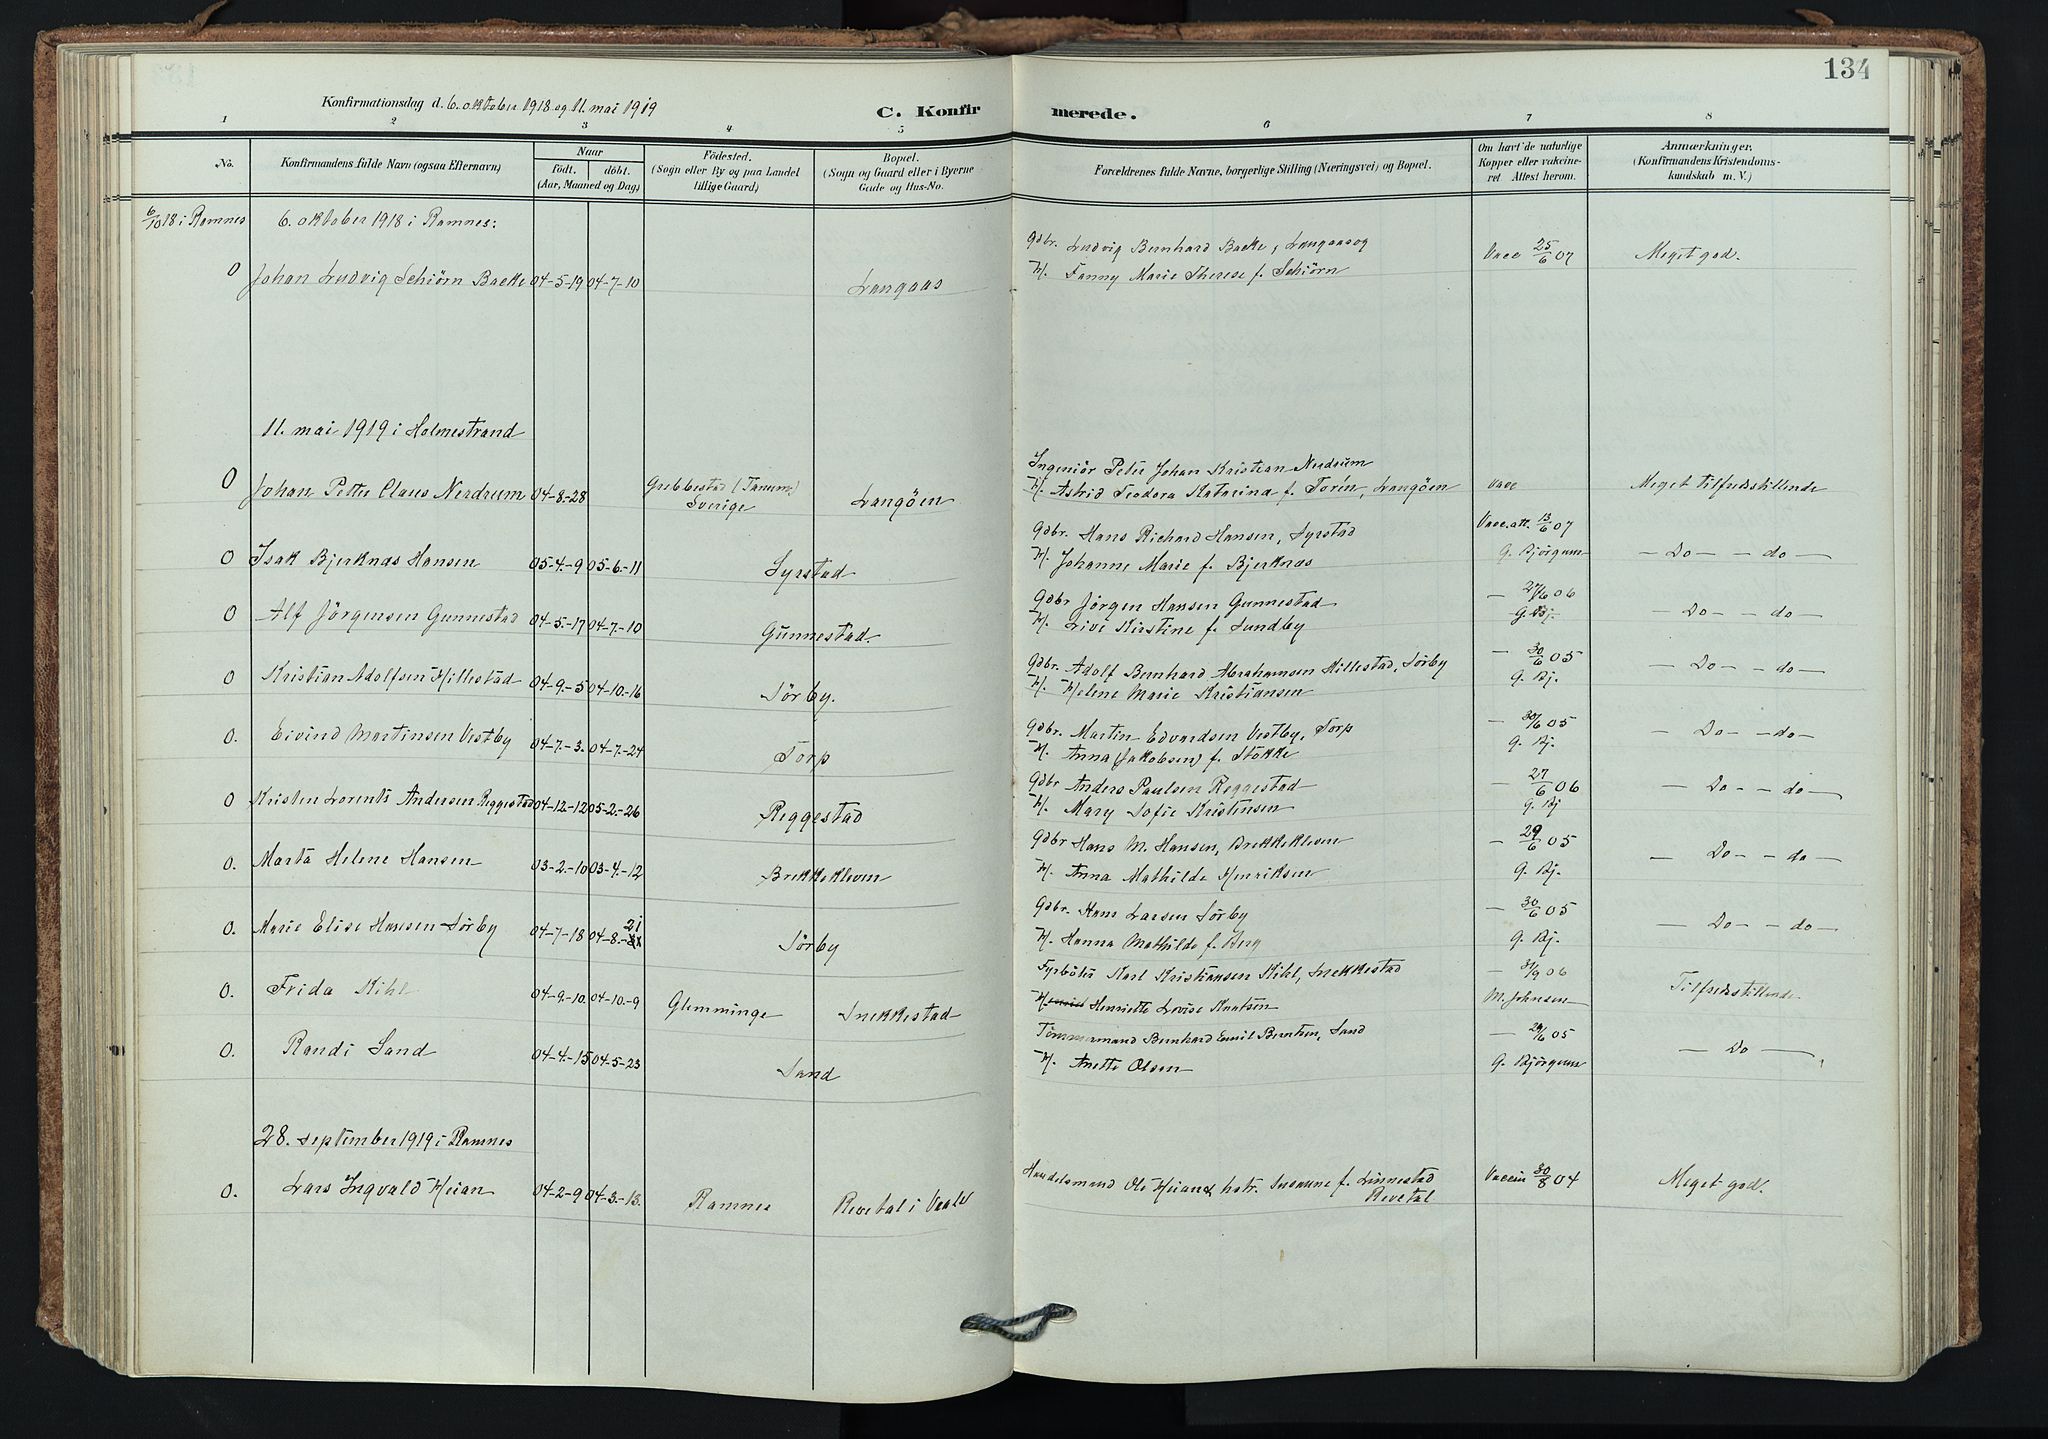 134
Konfirmationsdag d. 6. oktober 1918 og 11. mai 1919
C. Konfirmerede.
1 2 3 4 5 6 7 8
No. Konfirmandens fulde Navn (ogsaa Efternavn) Naar født. døbt. (Aar, Maaned og Dag) Fødested. (Sogn eller By og paa Landet tillige Gaard) Bopæl. (Sogn og Gaard eller i Byerne Gade og Hus-No. Forældrenes fulde Navne, borgerlige Stilling (Næringsvei) og Bopæl. Om havt de naturlige Kopper eller vakcineret Attest herom. Anmærkninger. (Konfirmandens Kristendomskundskab m. V.)
6/10 18 i Ramnes 6. oktober 1918 i Ramnes:
Gdbr. Ludvig Bernhard Backe, Langaas og Vacc 25/6 07 Meget god.
0 Johan Ludvig Schiörn Backe 04-5-19 04-7-10 Langaas H. Fanny Marie Therese f. Schiörn
11. mai 1919 i Holmestrand
Ingeniör Peter Johan Kristian Nerdrum
0 Johan Petter Claus Nerdrum 04-8-28 Grebbestad (Tanum) Sverige Langöen H. Astrid Teodora Katarina f. Torén, Langöen vacc Meget tilfredsstillende
Gdbr. Hans Richard Hansen, Syrstad Vacc. att. 13/6 07
0 Isak Bjerknæs Hansen 05-4-9 05-6-11 Syrstad H. Johanne Marie f. Bjerknæs G. Björgum — Do — — do —
Gdbr Jörgen Hansen Gunnestad — 27/6 06
0 Alf Jörgensen Gunnestad 04-5-17 04-7-10 Gunnestad. H. Live Kirstine f. Sundby G. Bj. — Do — — do —
Gdbr. Adolf Bernhard Abrahamsen Hillestad, Sörby — 30/6 05
0 Kristian Adolfsen Hillestad 04-9-5 04-10-16 Sörby. H. Helene Marie Kristiansen G. Bj. — Do — — do —
Gdbr. Martin Edvardsen Vestby, Torp — 30/6 05
0. Eivind Martinsen Vestby 04-7-3. 04-7-24 Torp H. Anna (Jakobsen) f. Stokke G. Bj. — Do — — do —
Gdbr Anders Paulsen Reggestad — 27/6 06
0 Kristen Lorents Andersen Reggestad 04-12-12 05-2-26 Reggestad H. Mary Sofie Kristensen G. Bj — Do — — do —
Gdbr Hans M. Hansen, Brekkekleven — 29/6 05
0. Marta Helene Hansen 03-2-10 03-4-12 Brekkekleven H. Anna Mathilde Henriksen G. Bj. — Do — — do —
Gdbr. Hans Larsen Sörby — 30/6 05
0. Marie Elise Hansen Sörby 04-7-18 04-8-21 Sörby H. Hanna Mathilde f. Berg G. Bj. — Do — — do —
Fyrböter Karl Kristiansen Kihl, Snekkestad — 31/9 06
0. Frida Kihl 04-9-10. 04-10-9 Glemminge Snekkestad H. Henriette Lovise Knutsen M. Johnsen Tilfredsstillende
Tömmermand Bernhard Emil Berntsen, Sand — 29/6 05
0. Randi Sand 04-4-15 04-5-23 Sand H. Anette Olsen G. Björgum — Do —
28. september 1919 i Ramnes
0. Lars Ingvald Heian 04-2-9 04-3-13. Ramnes Revetal i Vaale Handelsmand Ole Heian & hstr. Susanne f. Linnestad Revetal Vaccin 30/8 04 Meget god.